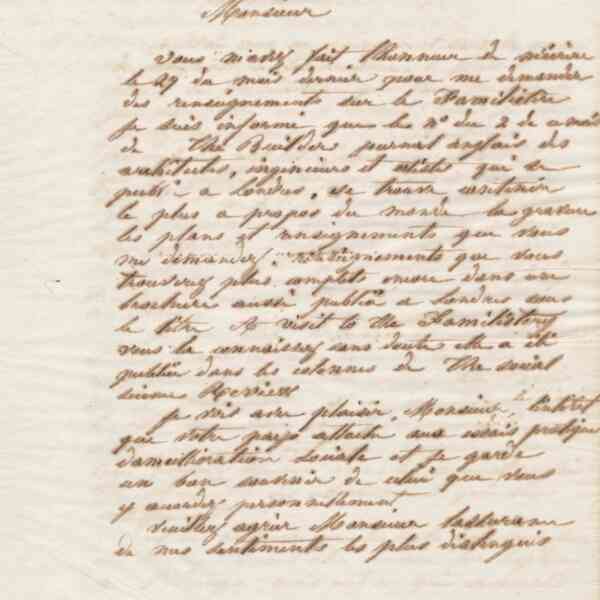 Monsieur
vous m'avez fait l'honneur de m'écrire
le 29 du mois dernier pour me demander
des renseignements sur le Familistère
je suis informé que le n° du 2 de ce mois
de The Builder journal anglais des
architectes, ingénieurs et artistes qui se
publie a Londres, se trouve contenir
le plus a propos du monde la gravure
les plans et renseignements que vous
me demandez, renseignements que vous
trouverez plus complets encore dans une
brochure aussi publiée a Londres sous
le titre A visit to the Familistery
vous la connaissez sans doute elle a été
publiée dans les colonnes de The social
science Review
Je vois avec plaisir, Monsieur, l'intérêt
que votre pays attache aux essais pratiques
d'amélioration sociale et je garde
un bon souvenir de celui que vous
y accordez personnellement
veuillez agréer Monsieur l'assurance
de mes sentiments les plus distingués